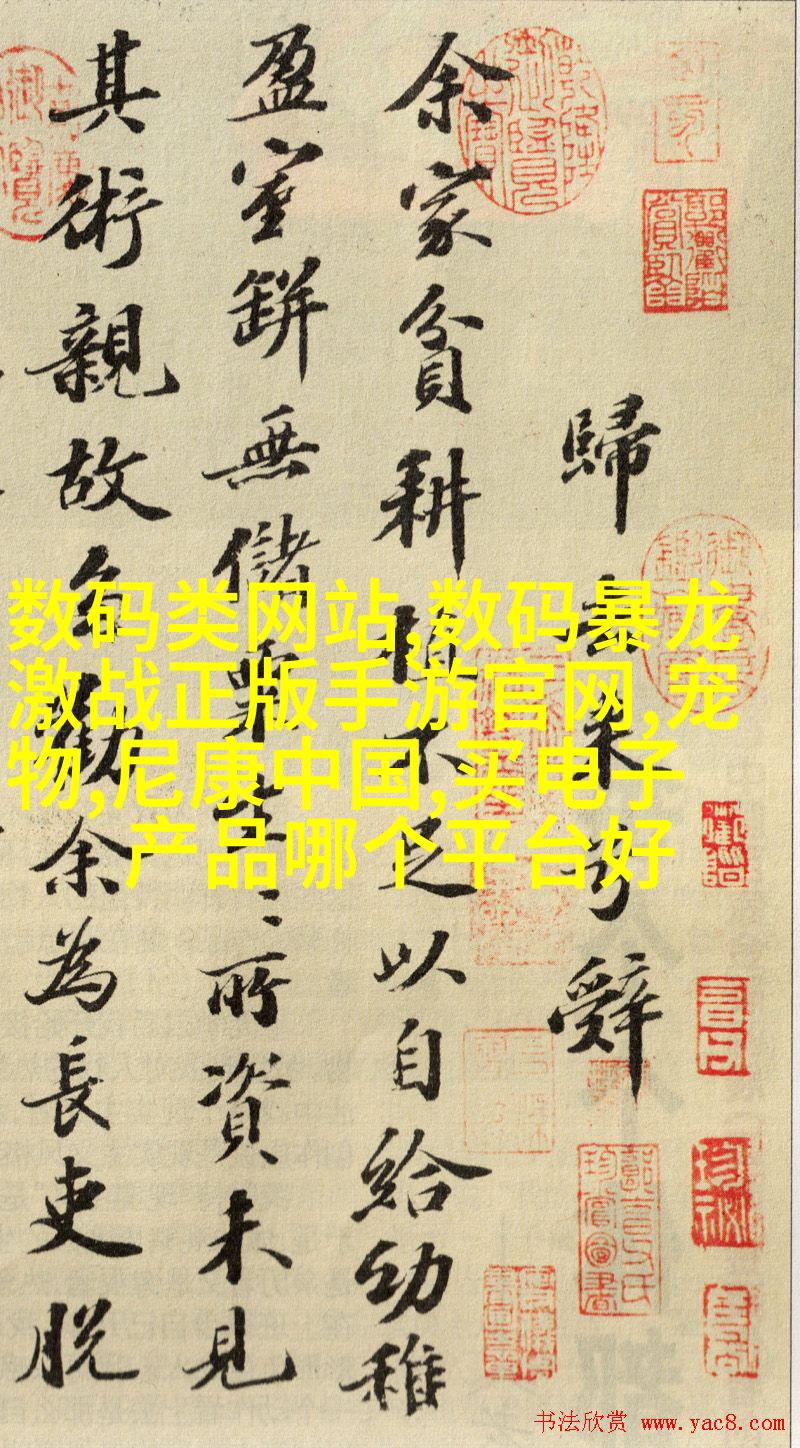 歸去来兮辭
余家貧耕植不足以自給幼稚
盈室缾無儲粟生〻所資未見
其術親故多勸余為長吏脫
数码类网站,数码暴龙
激战正版手游官网,宠
物,尼康中国,买电子
产品哪个平台好
书法欣赏 www.yac8.com